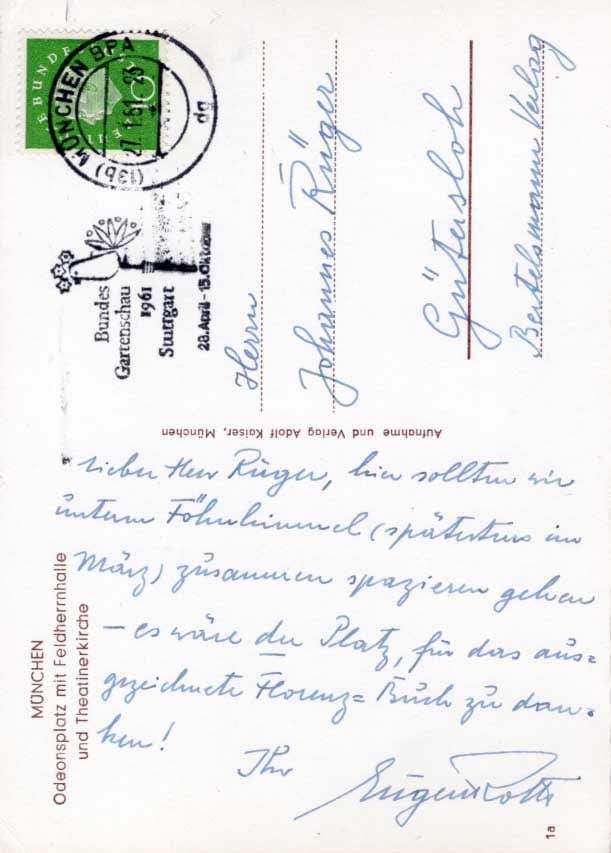 MÜNCHEN
Odeonsplatz mit Feldherrnhalle
und Theatinerkirche
(13b) MÜNCHEN BPA
27.1.61
dg
Bundes
Gartenschau
1961
Stuttgart
28. April - 15. Oktober
Herrn
Johannes Rüger
Gütersloh
Bertelsmann Verlag
Aufnahme und Verlag Adolf Kaiser, München
Lieber Herr Rüger, hier sollten wir
unterm Föhnhimmel (spätestens im
März) zusammen spazieren gehen
– es wäre der Platz, für das aus=
gezeichnete Florenz=Buch zu dan=
ken!
Ihr
Eugen Roth
1a